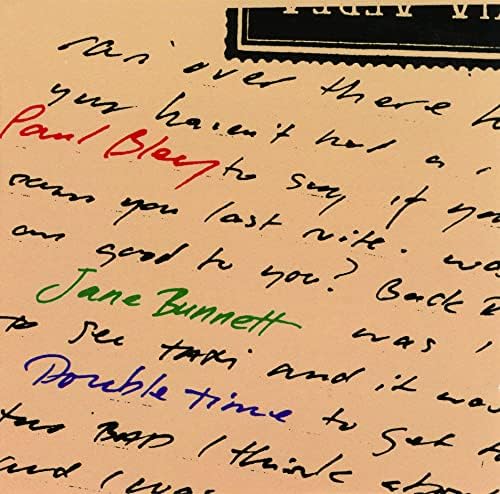 over there
you haven't had a
Paul Bley to say if you
you last nite. wa
good to you? Back
Jane Bunnett was I
to see taxi and it wa
Double time to get to
too BAD I think abo
and I was